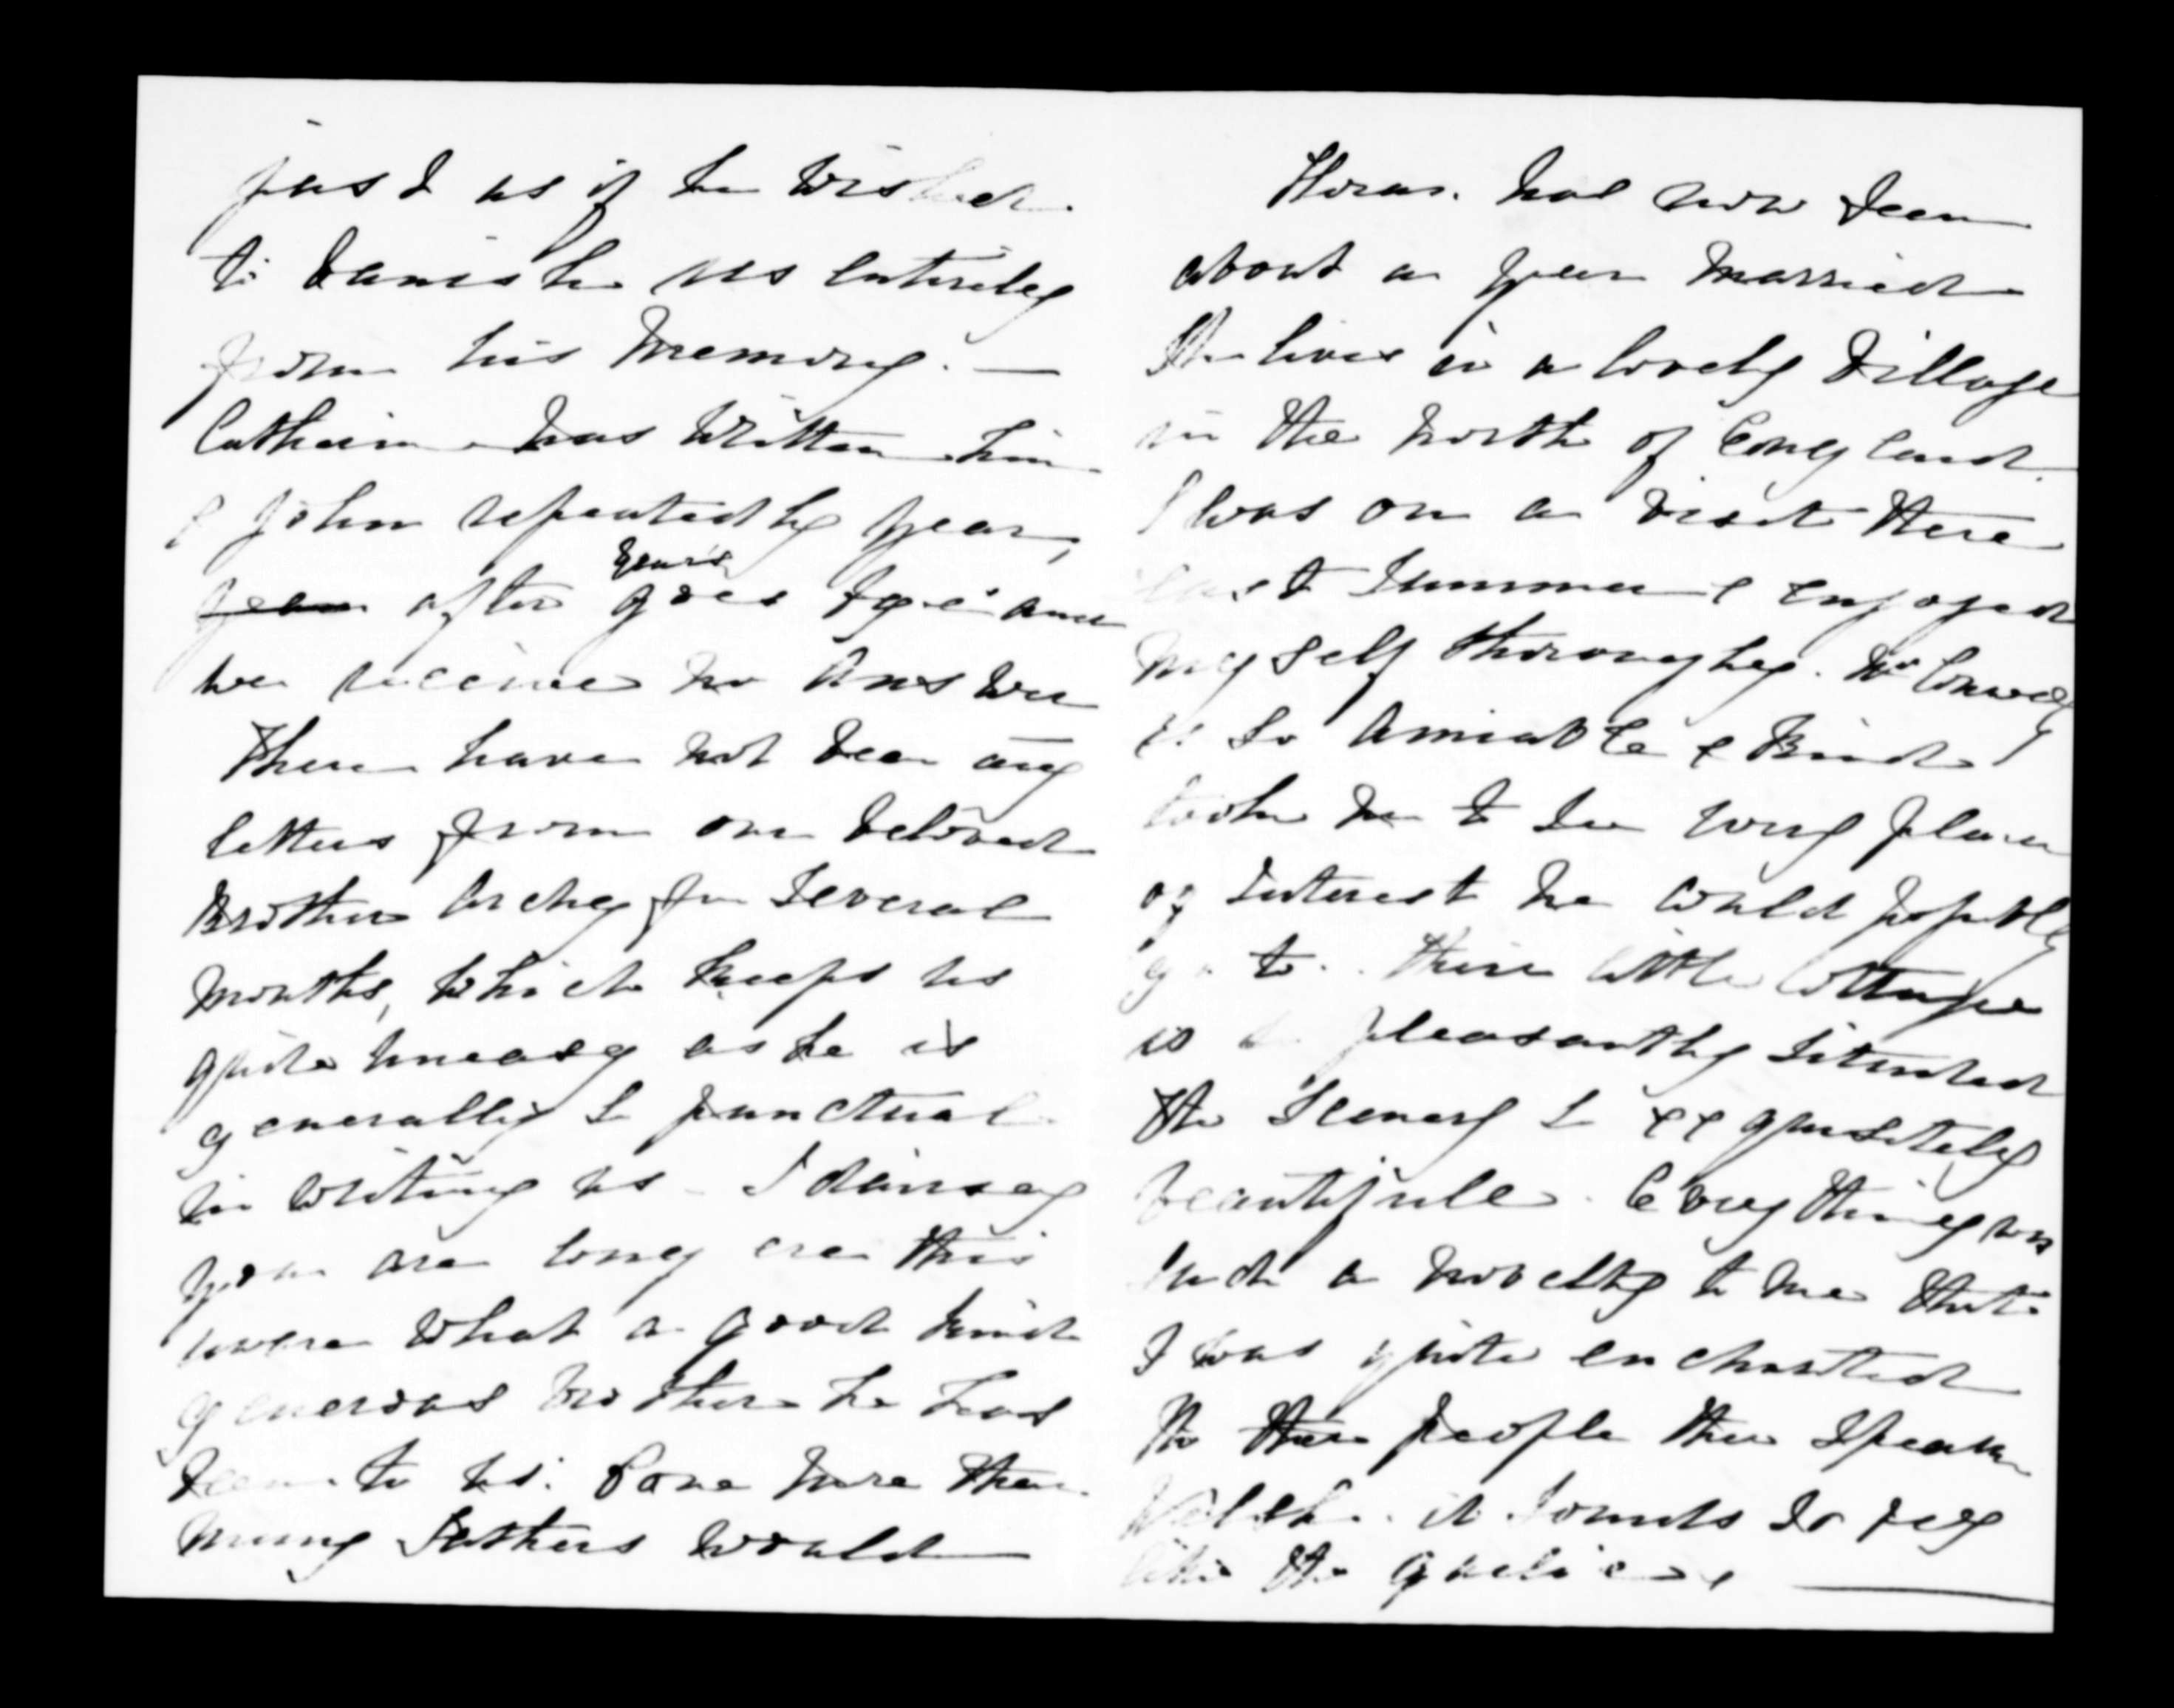 just as if he wished
to banish us entirely
from his memory. —
Catherine has written him
& John repeatedly year,
year after year goes bye and
we receive no answer
There have not been any
letters from our beloved
Brother Archy for several
months, which keeps us
quite uneasy as he is
generally so punctual
in writing us - I dairsay
you are long ere this
aware what a good kind
generous brother he has
been to us. Done more than
many Fathers would
Flora. has now been
about a year married
She lives in a lovely village
in the north of England.
I was on a visit there
last summer & enjoyed
myself thoroughly. Mr
is so amiable & kind
took me to see every place
of interest he could possibly
go to. Their little cottage
is so pleasantly situated
the scenery so exquisitely
beautifull. Every thing was
such a novelty to me that
I was quite enchanted
the people they speak
Welsh. it sounds so very
like the Gaelic &